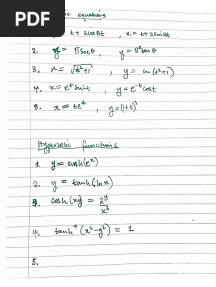 PDF
equations
t + 2cos2t, x = t + 2sin2t
2. y = tan θ
3. x = √(t²+1), y = ln(t²+1)
4. x = eᵗ sin t, y = e⁻ᵗ cos t
5. x = teᵗ, y = (1+t)²
Hyperbolic functions
1. y = sinh(eˣ)
2. y = tanh(ln x)
3. cosh(xy) =
4. tanh (x²-y²) = 1
5.